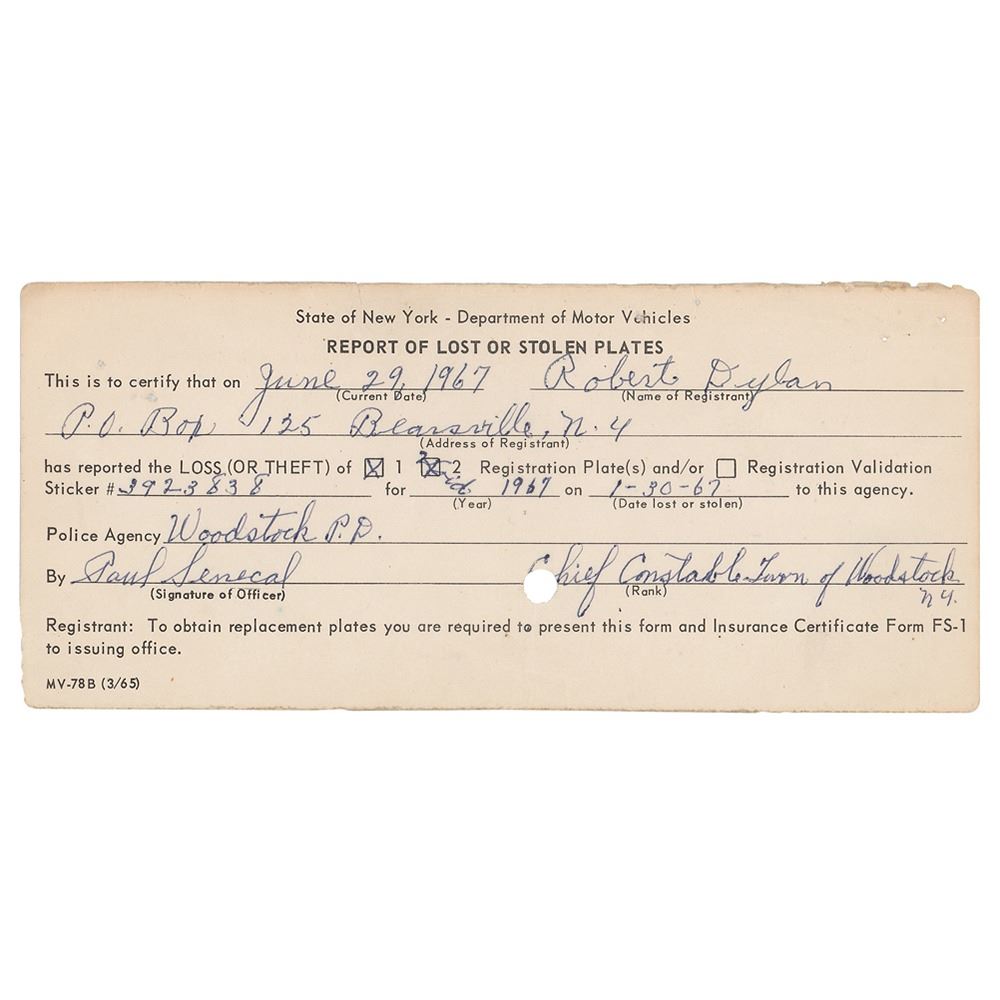 State of New York - Department of Motor Vehicles
REPORT OF LOST OR STOLEN PLATES
This is to certify that on June 29, 1967 Robert Dylan
(Current Date) (Name of Registrant)
P.O. Box 125 Bearsville, N.Y
(Address of Registrant)
has reported the LOSS (OR THEFT) of ☒ 1 ☒ 2 Registration Plate(s) and/or ☐ Registration Validation
Sticker # 3923838 for 1967 on 1-30-67 to this agency.
(Year) (Date lost or stolen)
Police Agency Woodstock P.D.
By Paul Senecal Chief Constable Town of Woodstock
N.Y.
(Signature of Officer) (Rank)
Registrant: To obtain replacement plates you are required to present this form and Insurance Certificate Form FS-1
to issuing office.
MV-78B (3/65)